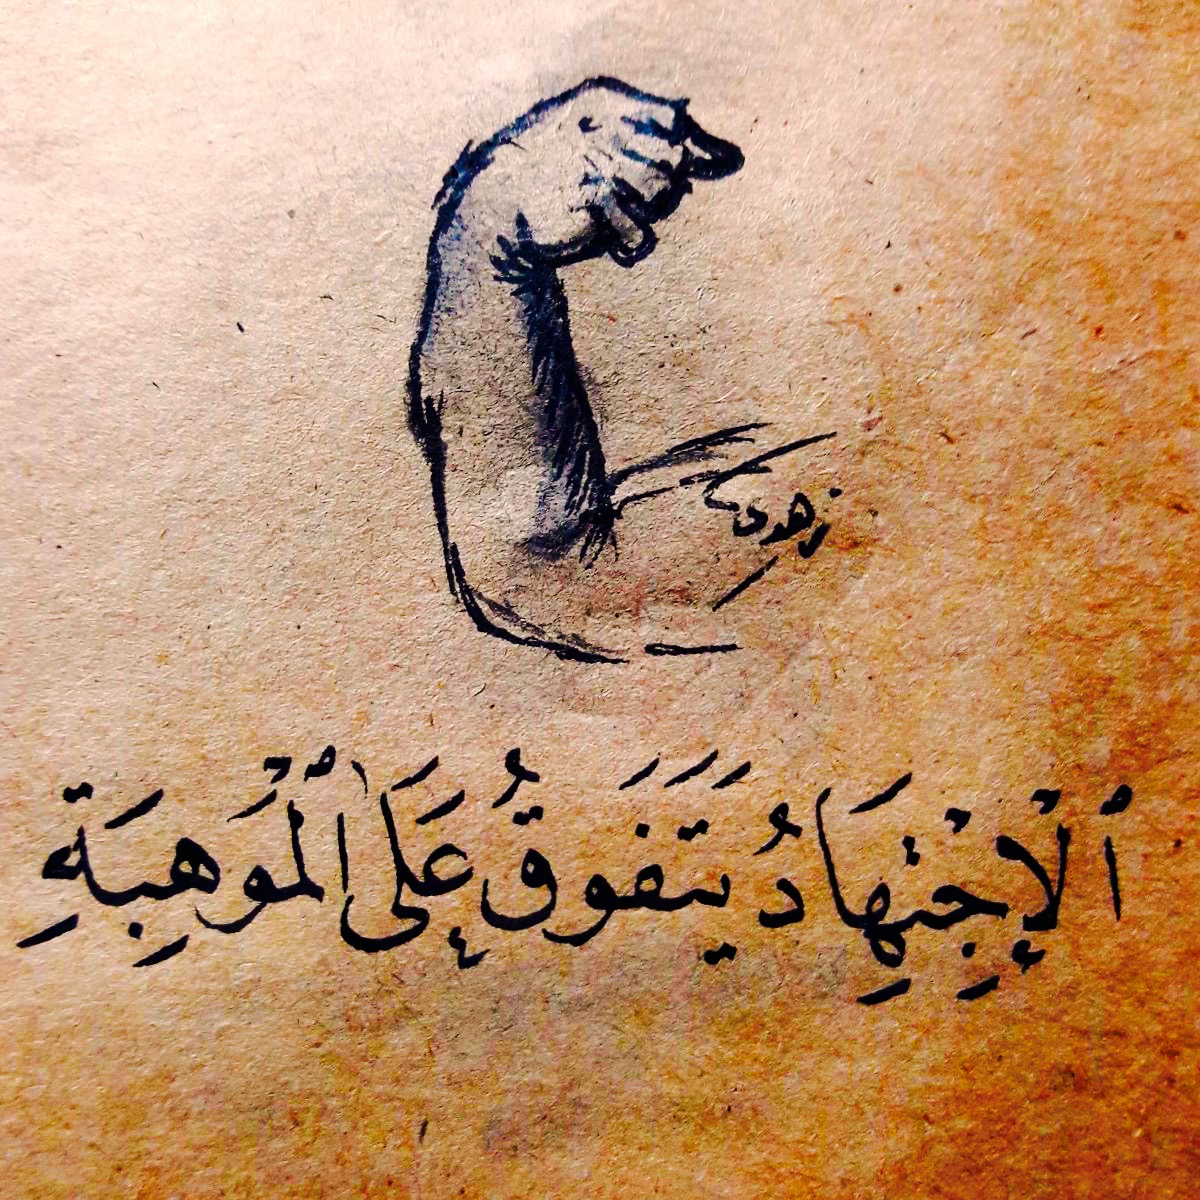 زهدي
ٱلْإِجْتِهَادُ يَتَفَوقُ عَلَى ٱلْمَوْهِبَةِ